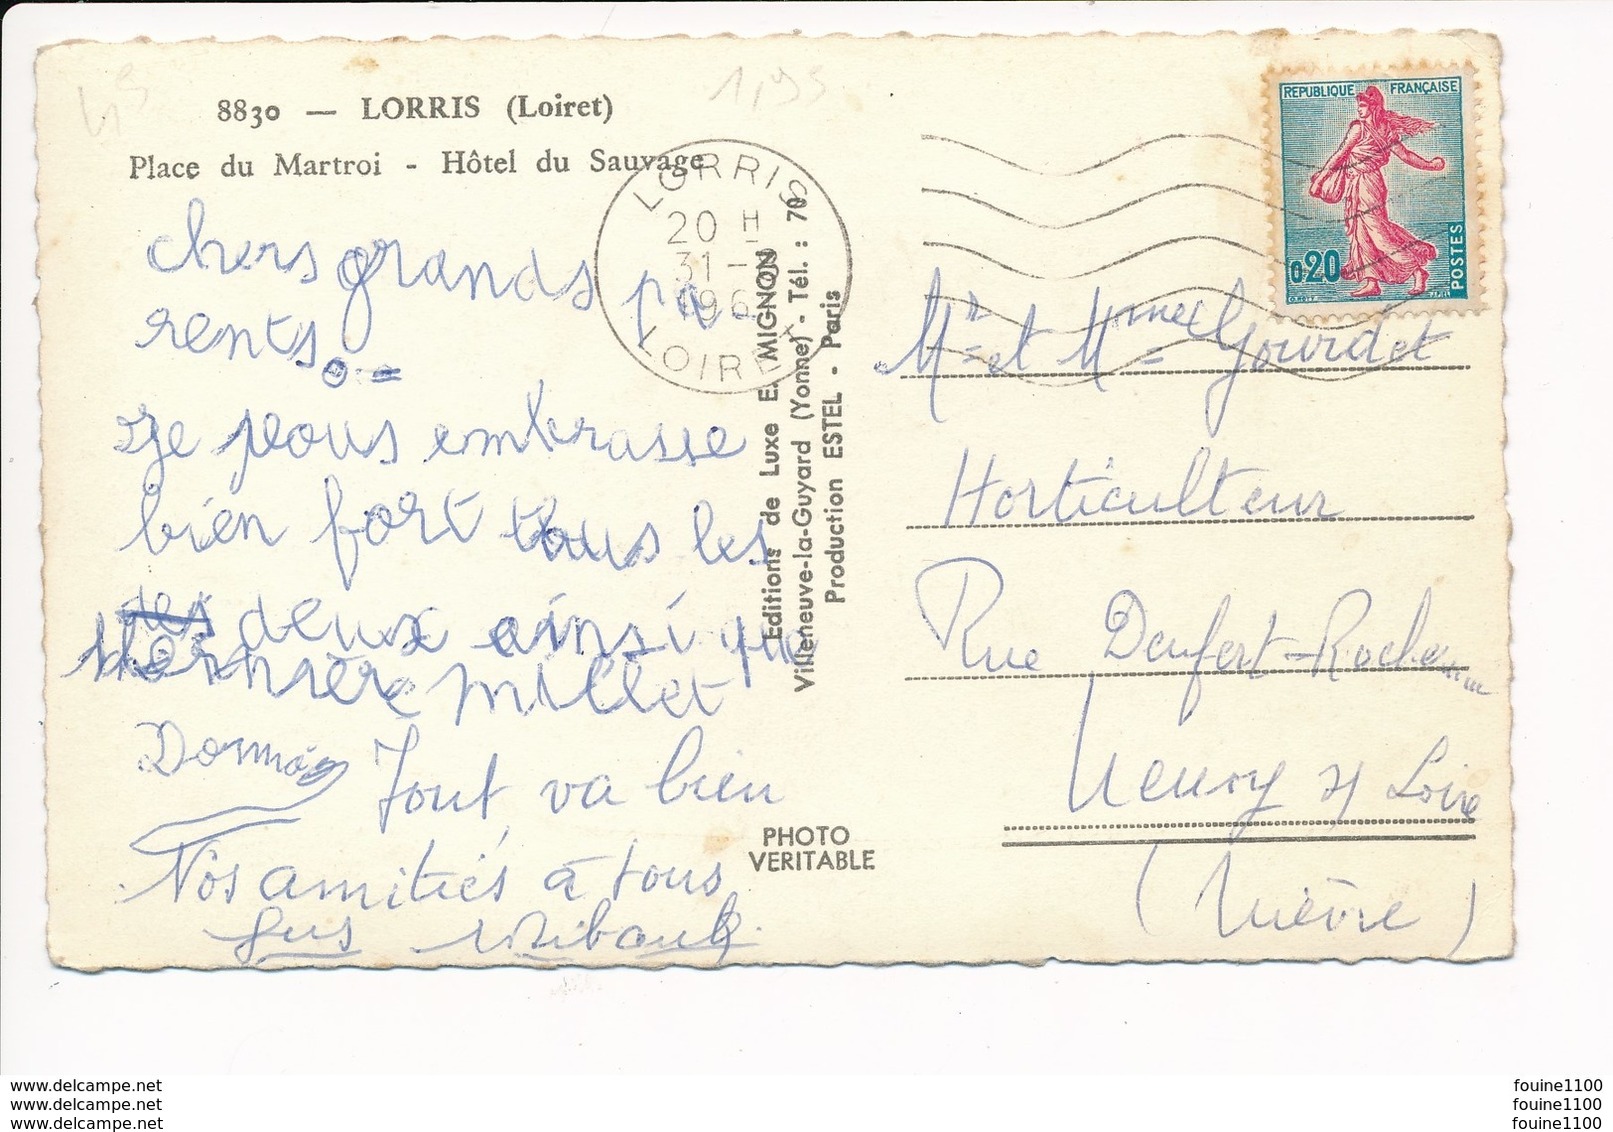 8830 — LORRIS (Loiret)
Place du Martroi - Hôtel du Sauvage
chers grands pa-
rents.=
Je vous embrasse
bien fort tous les
des deux ainsi que
millet
Tout va bien
Nos amitiés à tous
LORRIS
20 H
31-
196
LOIRET
Editions de Luxe E. MIGNON
Villeneuve-la-Guyard (Yonne) - Tél. : 70
Production ESTEL - Paris
PHOTO
VERITABLE
REPUBLIQUE FRANÇAISE
0,20
POSTES
Mr et Mme Gourdet
Horticulteur
Rue Denfert-Rochereau
Neuvy s/ Loire
(Nièvre)
www.delcampe.net
www.delcampe.net
www.delcampe.net
fouine1100
fouine1100
fouine1100